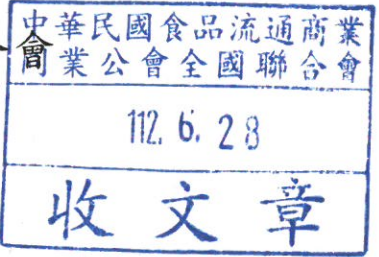 中華民國食品流通商業
同業公會全國聯合會
會
112. 6. 28
收文章